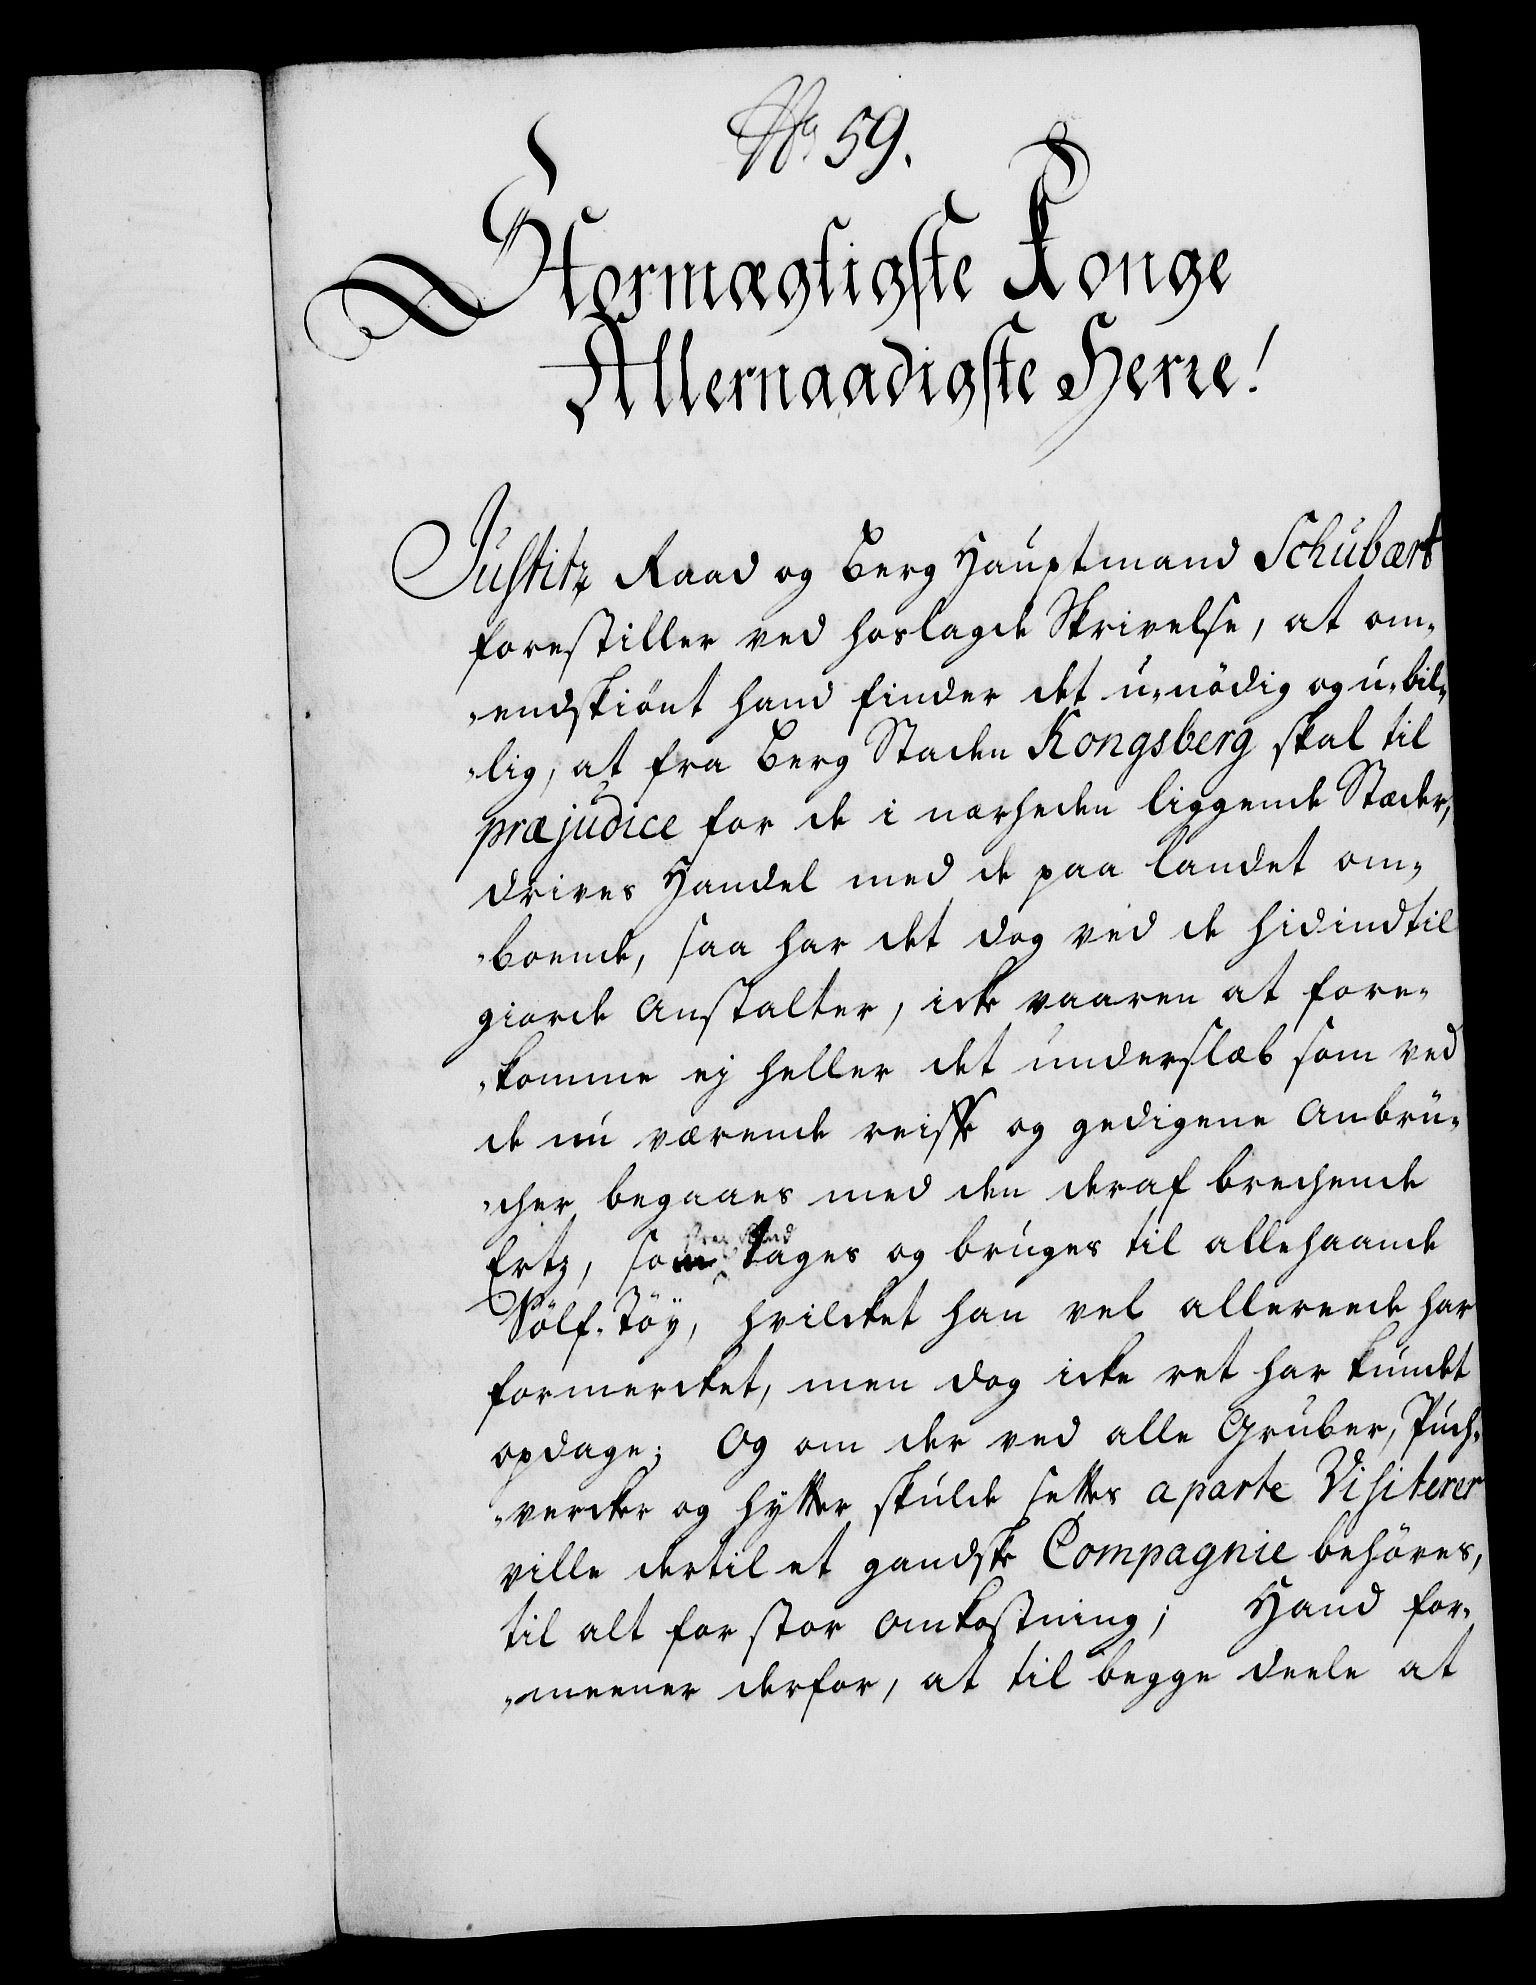 No 59.
Stormægtigste Konge
Allernaadigste Herre!
Justitz Raad og Berg Hauptmand Schubart
forestiller ved hoslagde Skrivelse, at om-
-endskiönt hand finder det u-nödig og u-bil-
-lig, at fra Berg Staden Kongsberg skal til
præjudice for de i nærheden liggende Stæder,
drives Handel med de paa landet om-
-boende, saa har det dog ved de hidindtil
giorde Anstalter, icke vaaren at fore-
-komme ej heller det underslæb som ved
de nu værende reiske og gedigene Anbrü-
-cher begaaes med den deraf brechende
Ertz, som tages og bruges til allehaande
Sölf-Töy, hvilcket han vel allereede har
formercket, men dog icke ret har kundet
opdage; Og om der ved alle Gruber, Puch-
-vercker og hytter skulde settes aparte Visiterer
ville dertil et gandske Compagnie behöves,
til alt for stor Omkostning; Hand for-
-meener derfor, at til begge deele at